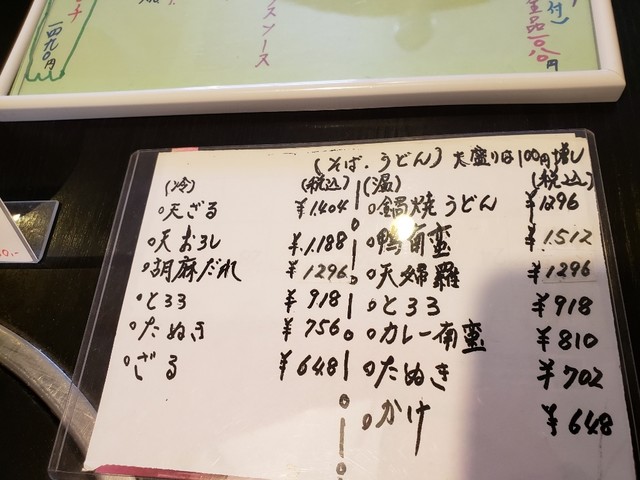 一四九〇円
スソース
付)
全品一〇八〇円
(そば・うどん) 大盛りは100円増し
(冷) (税込)
天ざる ¥1,404
天おろし ¥1,188
胡麻だれ ¥1296
とろろ ¥918
たぬき ¥756
ざる ¥648
(温) (税込)
鍋焼うどん ¥1296
鴨南蛮 ¥1,512
天婦羅 ¥1296
とろろ ¥918
カレー南蛮 ¥810
たぬき ¥702
かけ ¥648